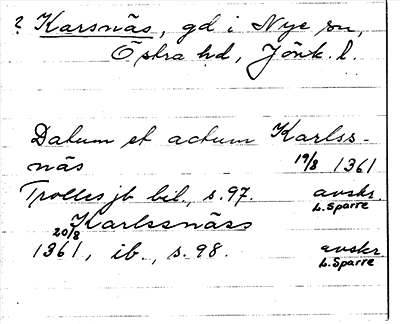 ? Karsnäs, gd i Nye sn,
Östra hd, Jönk. l.
Datum et actum Karlss-
näs 19/8 1361
Trolles jb bil., s. 97. avskr.
L. Sparre
Karlssnäss
20/8
1361, ib., s. 98. avskr
L. Sparre